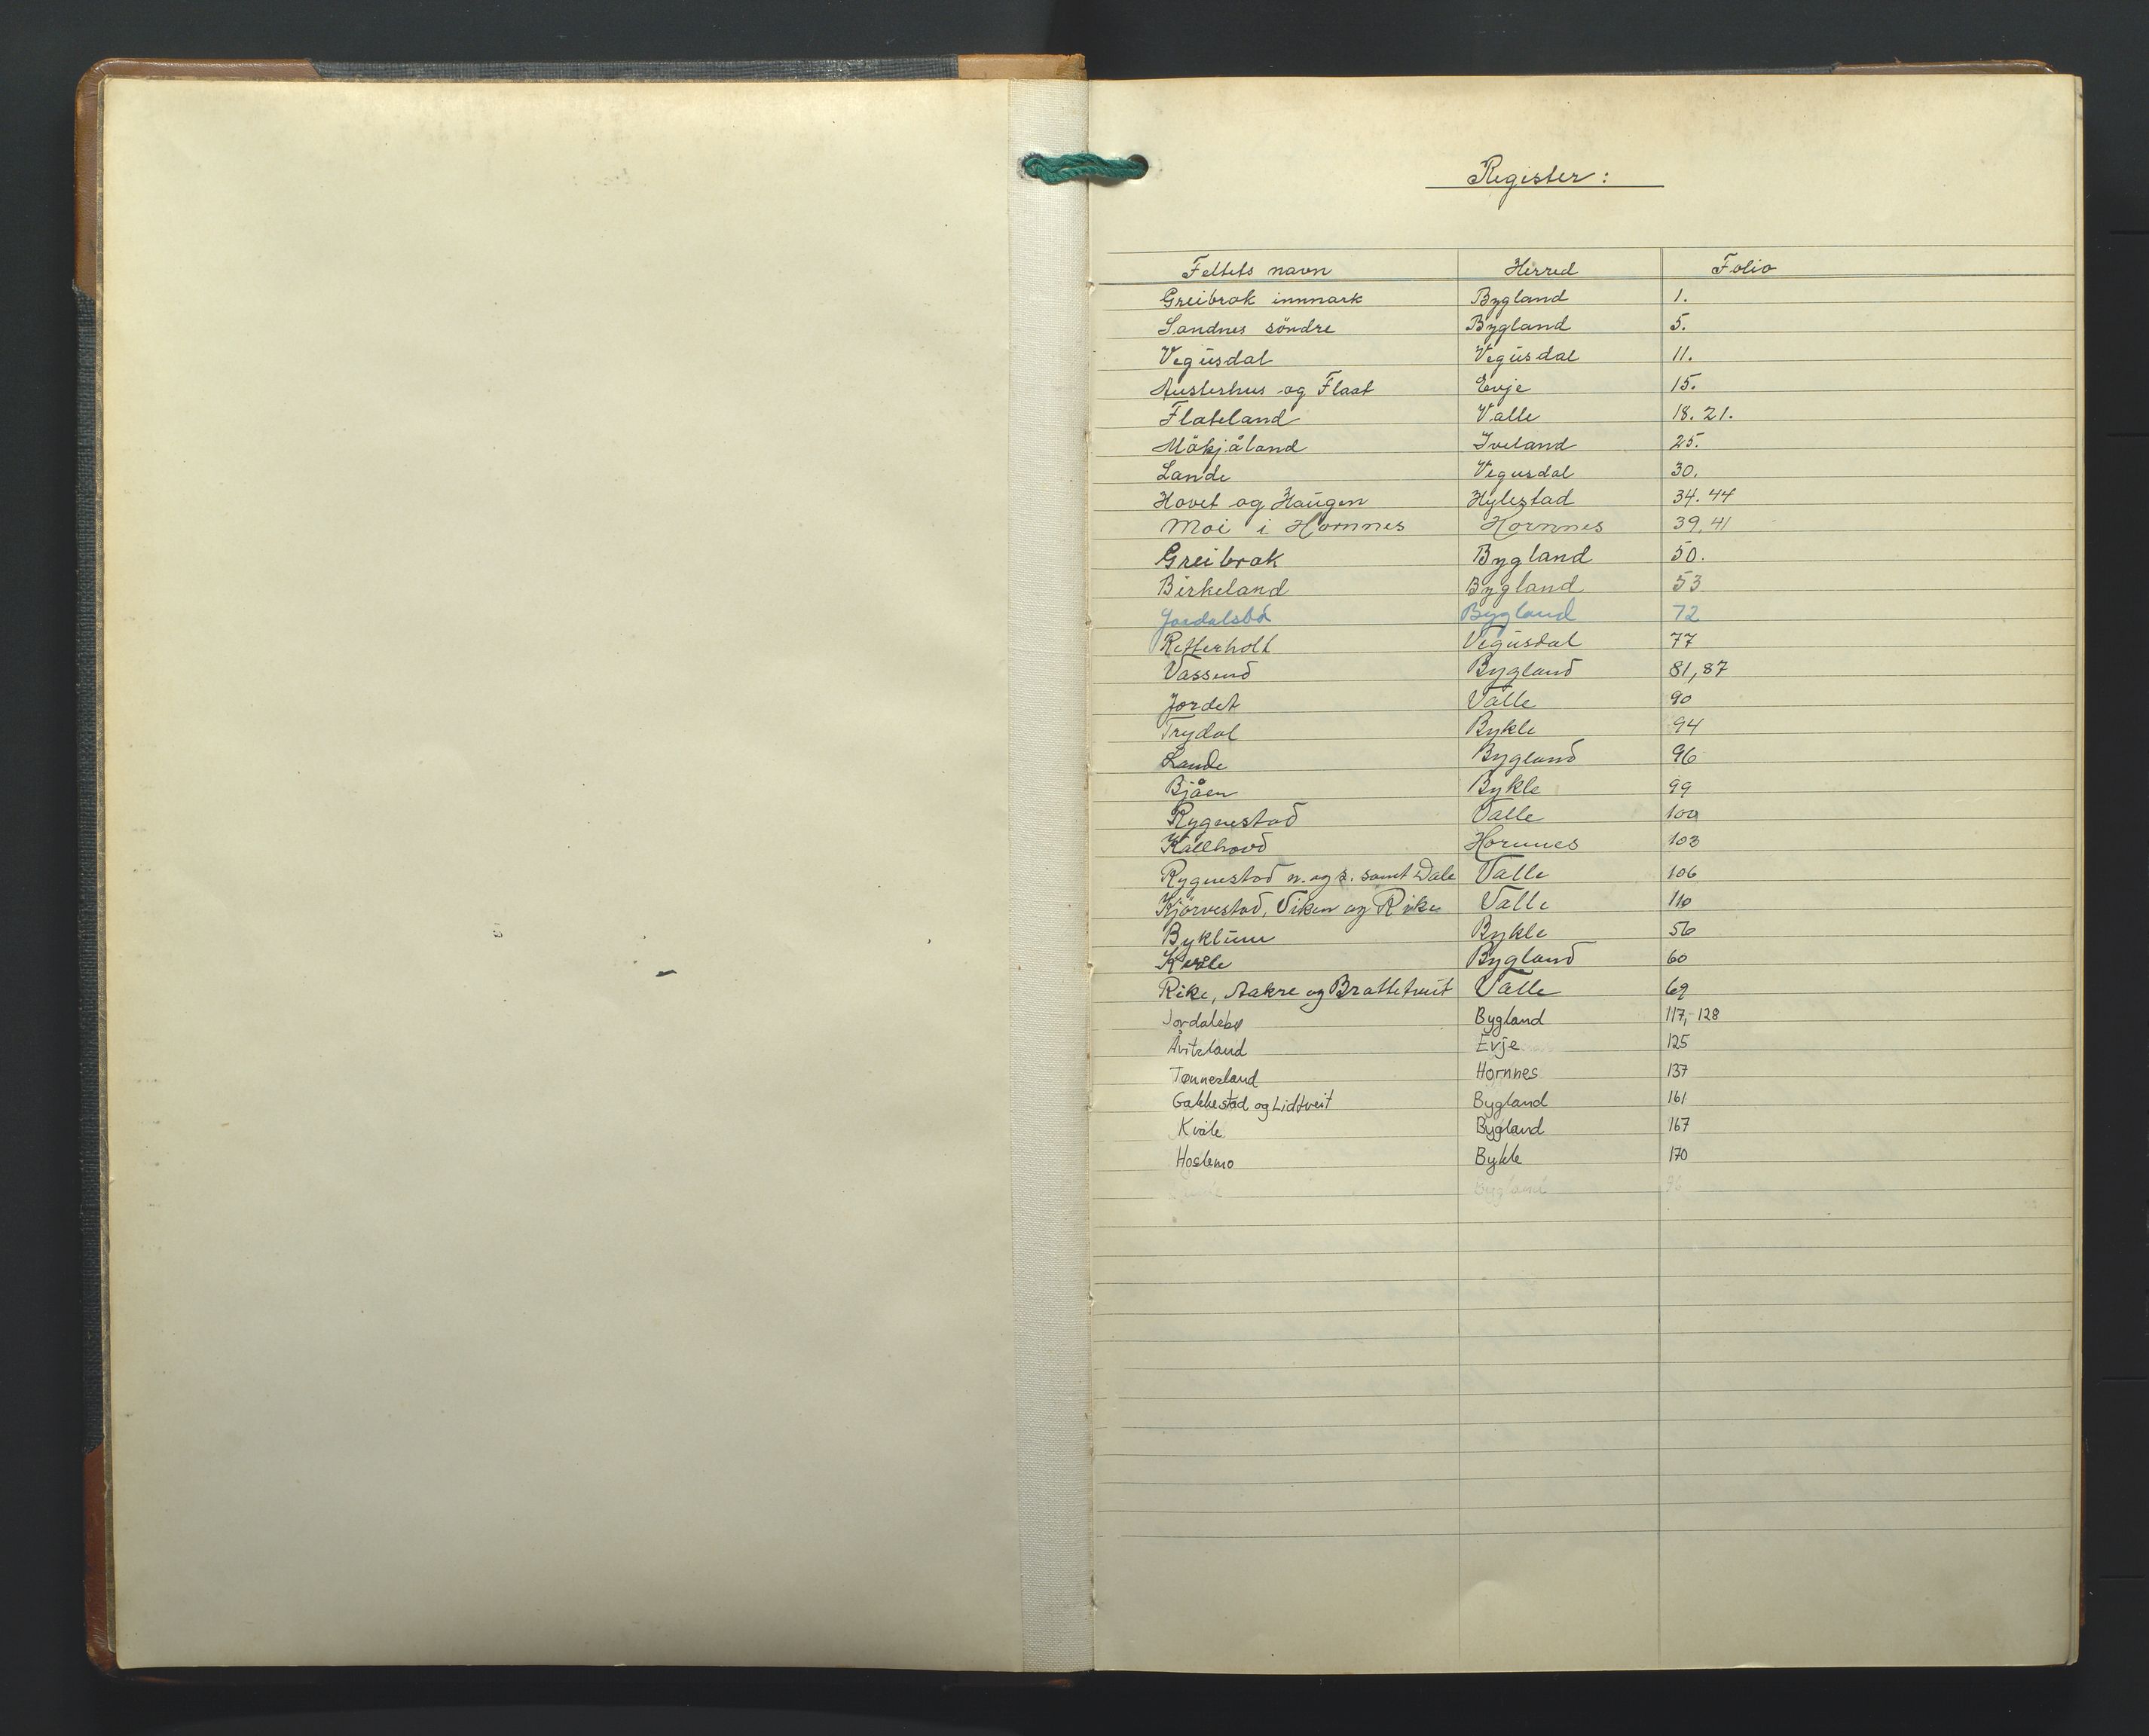 Register:
Feltets navn Herred Folio
Greibrok innmark Bygland 1.
Sandnes söndre Bygland 5.
Vegusdal Vegusdal 11.
Austerhus og Flaat Evje 15.
Flateland Valle 18. 21.
Måkjåland Iveland 25.
Lande Vegusdal 30.
Hovet og Haugen Hylestad 34. 44
Moi i Hornnes Hornnes 39, 41
Greibrok Bygland 50.
Birkeland Bygland 53
Jordalsbö Bygland 72
Retterholt Vegusdal 77
Vassend Bygland 81, 87
Jordet Valle 90
Trydal Bykle 94
Lande Bygland 96
Bjåen Bykle 99
Rygnestad Valle 100
Kallhovd Hornnes 103
Rygnestad n. og s. samt Dale Valle 106
Kjörvestad, Viken og Rike Valle 110
Byklum Bykle 56
Kvåle Bygland 60
Rike, Aakre og Brattetveit Valle 69
Jordalsbø Bygland 117,-128
Åvitsland Evje 125
Tønnesland Hornnes 137
Gakkestad og Lidtveit Bygland 161
Kvåle Bygland 167
Hoslemo Bykle 170
Bygland 96